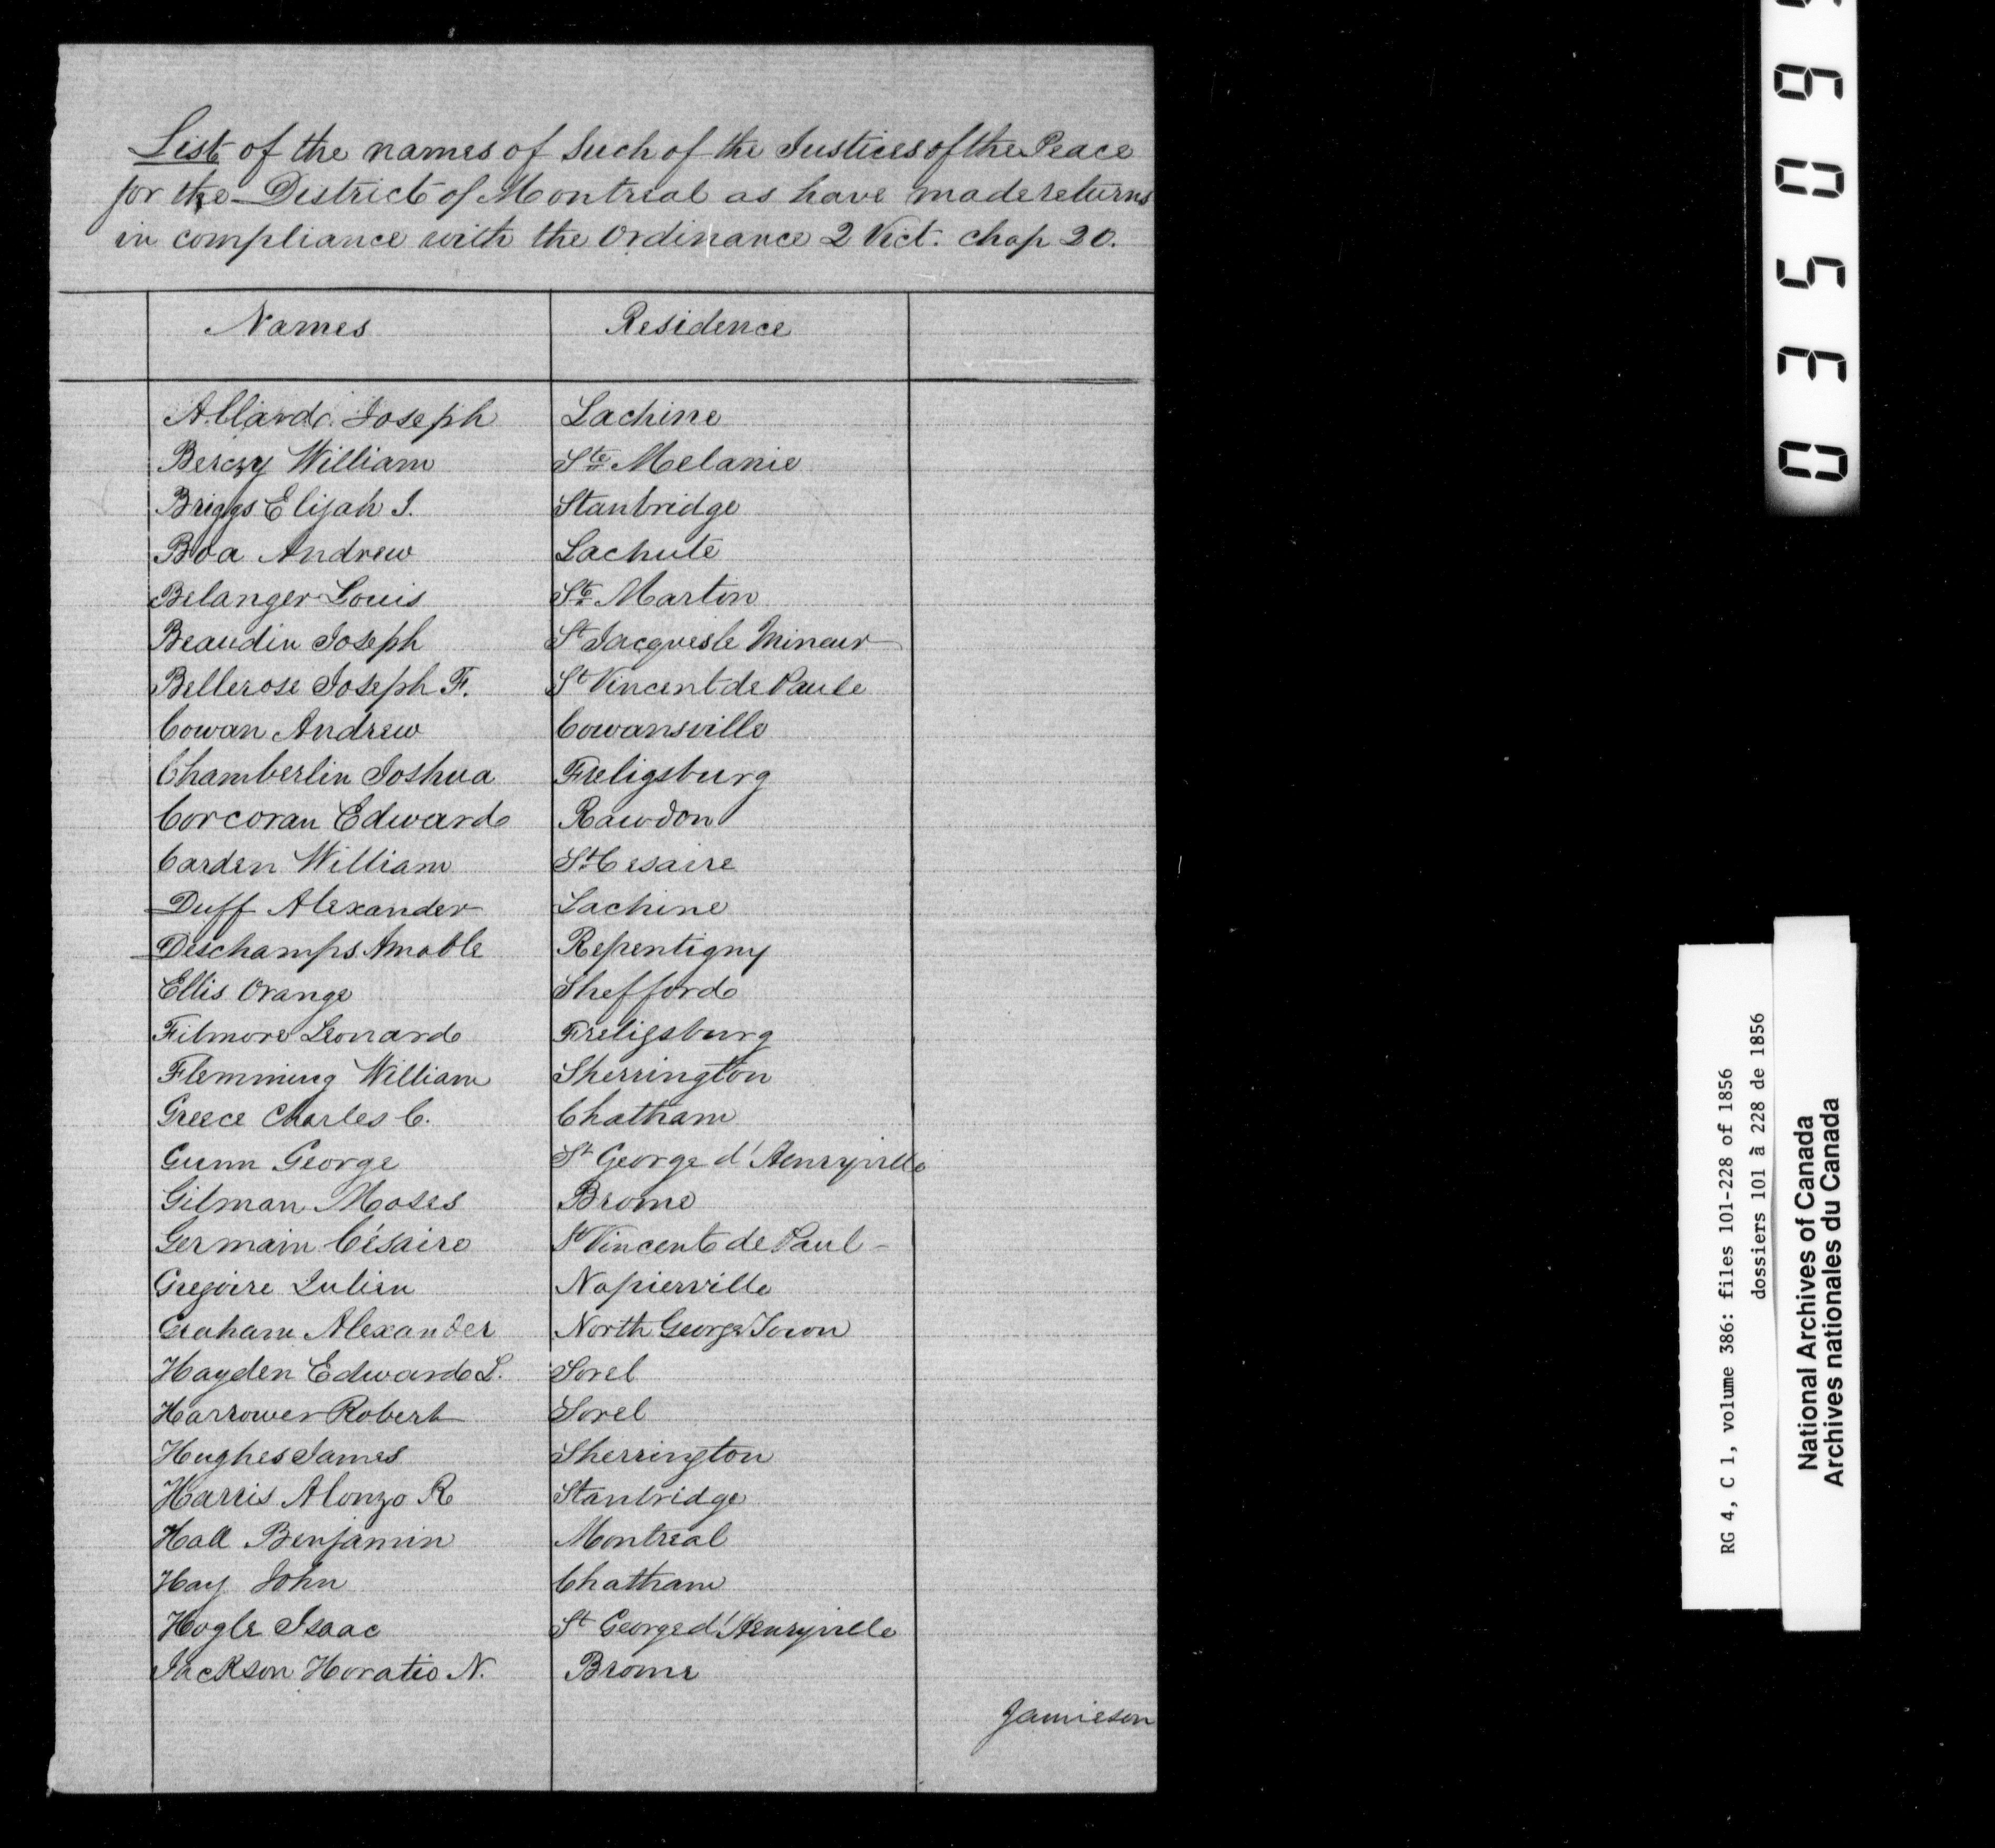 List of the names of Such of the Justices of the Peace
for the District of Montreal as have made returns
in compliance with the Ordinance 2 Vict. chap 20.
Names Residence
Allard Joseph Lachine
Berczy William Ste Melanie
Briggs Elijah J. Stanbridge
Boa Andrew Lachute
Belanger Louis St Martin
Beaudin Joseph St Jacques le Mineur
Bellerose Joseph F. St Vincent de Paule
Cowan Andrew Cowansville
Chamberlin Joshua Freligsburg
Corcoran Edward Rawdon
Carden William St Cesaire
Duff Alexander Lachine
Deschamps Amable Repentigny
Ellis Orange Shefford
Filmore Leonard Freligsburg
Flemming William Sherrington
Greece Charles C. Chatham
Gunn George St George d'Henryville
Gilman Moses Brome
Germain Césaire St Vincent de Paul -
Gregoire Julien Napierville
Graham Alexander North George Town
Hayden Edward L. Sorel
Harrower Robert Sorel
Hughes James Sherrington
Harris Alonzo R Stanbridge
Hall Benjamin Montreal
Hay John Chatham
Hogle Isaac St George d'Henryville
Jackson Horatio N. Brome
Jamieson
03509
RG 4, C 1, volume 386: files 101-228 of 1856
dossiers 101 à 228 de 1856
National Archives of Canada
Archives nationales du Canada